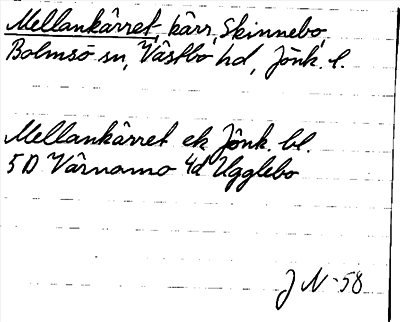 Mellankärret, kärr, Skinnebo,
Bolmsö sn, Västbo hd, Jönk. l.
Mellankärret ek Jönk. bl.
5D Värnamo 4d Ugglebo
J N -58